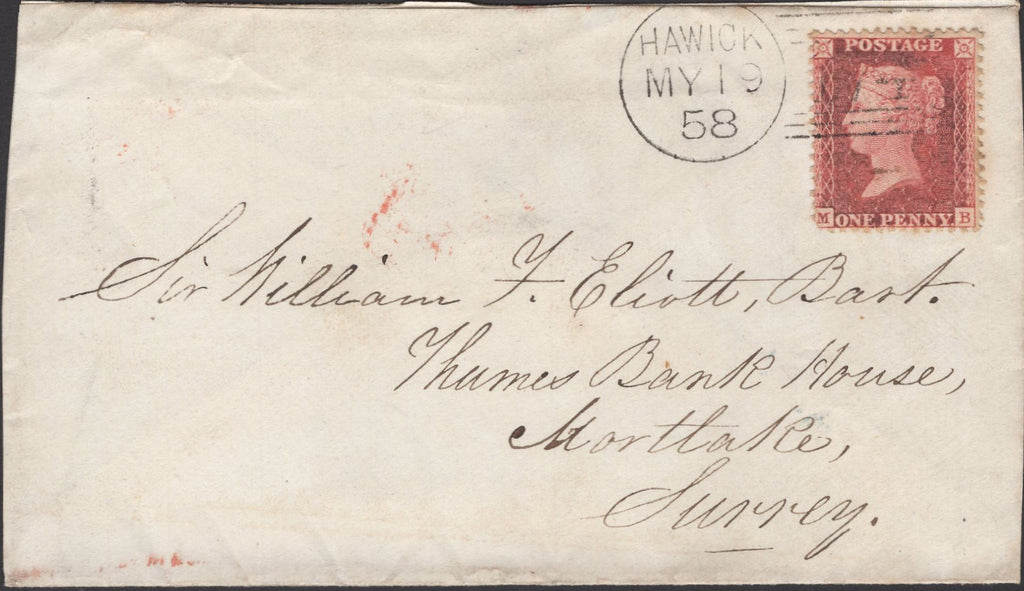 HAWICK
MY 19
58
POSTAGE
M ONE PENNY B
Sir William F. Eliott, Bart.
Thames Bank House,
Mortlake,
Surrey.